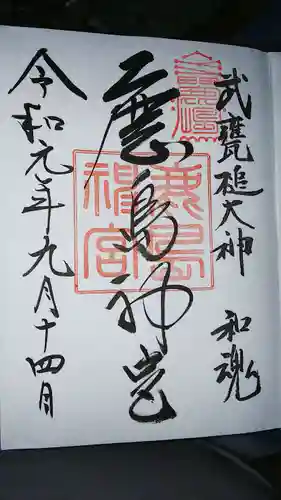 武甕槌大神 和魂
鹿島神宮
令和元年九月十四日
鹿島
神宮